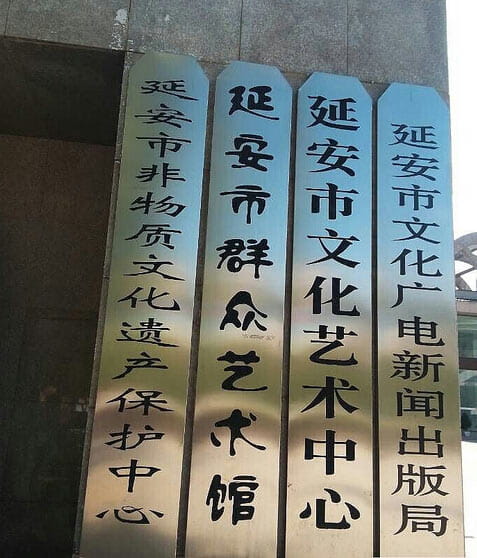 延安市非物质文化遗产保护中心
延安市群众艺术馆
延安市文化艺术中心
延安市文化广电新闻出版局